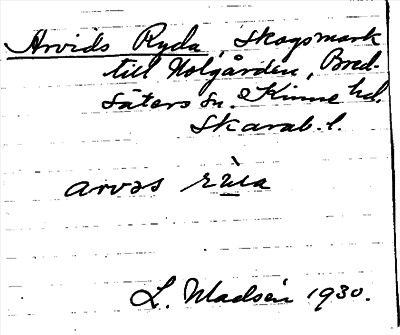 Arvids Ryda, skogsmark
till Holgården, Bred-
säters sn. Kinne hd.
Skarab. l.
L. Madsén 1930.